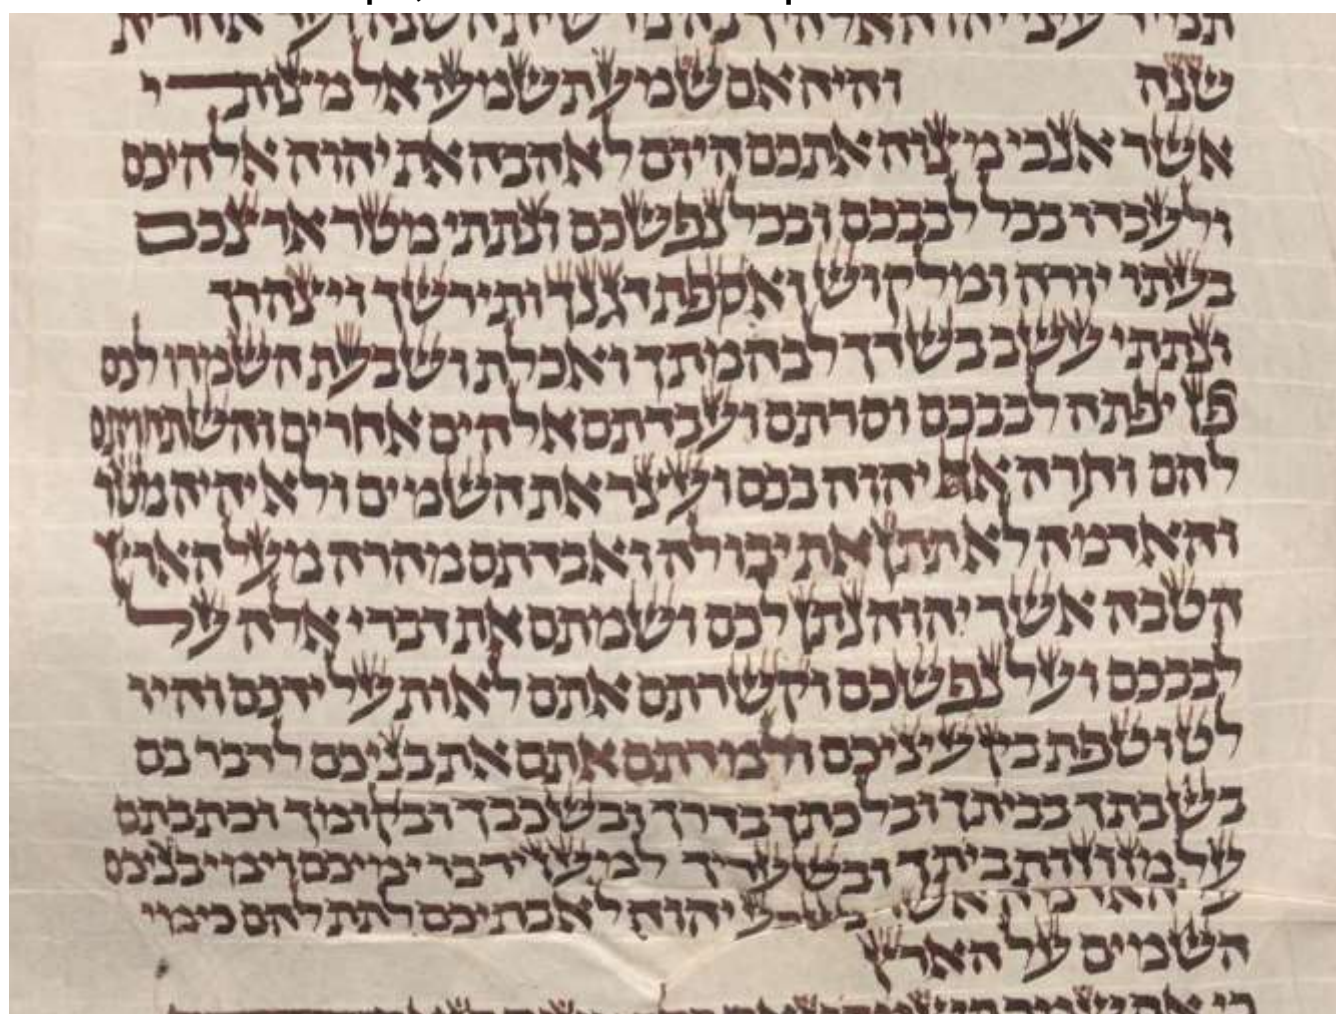 תמיד עיני יהוה אלהיך בה מרשית השנה ועד אחרית
שנה והיה אם שמע תשמעו אל מצותי
אשר אנכי מצוה אתכם היום לאהבה את יהוה אלהיכם
ולעבדו בכל לבבכם ובכל נפשכם ונתתי מטר ארצכם
בעתו יורה ומלקוש ואספת דגנך ותירשך ויצהרך
ונתתי עשב בשדך לבהמתך ואכלת ושבעת השמרו לכם
פן יפתה לבבכם וסרתם ועבדתם אלהים אחרים והשתחויתם
להם וחרה אף יהוה בכם ועצר את השמים ולא יהיה מטר
והאדמה לא תתן את יבולה ואבדתם מהרה מעל הארץ
הטבה אשר יהוה נתן לכם ושמתם את דברי אלה על
לבבכם ועל נפשכם וקשרתם אתם לאות על ידכם והיו
לטוטפת בין עיניכם ולמדתם אתם את בניכם לדבר בם
בשבתך בביתך ובלכתך בדרך ובשכבך ובקומך וכתבתם
על מזוזות ביתך ובשעריך למען ירבו ימיכם וימי בניכם
על האדמה אשר נשבע יהוה לאבתיכם לתת להם כימי
השמים על הארץ